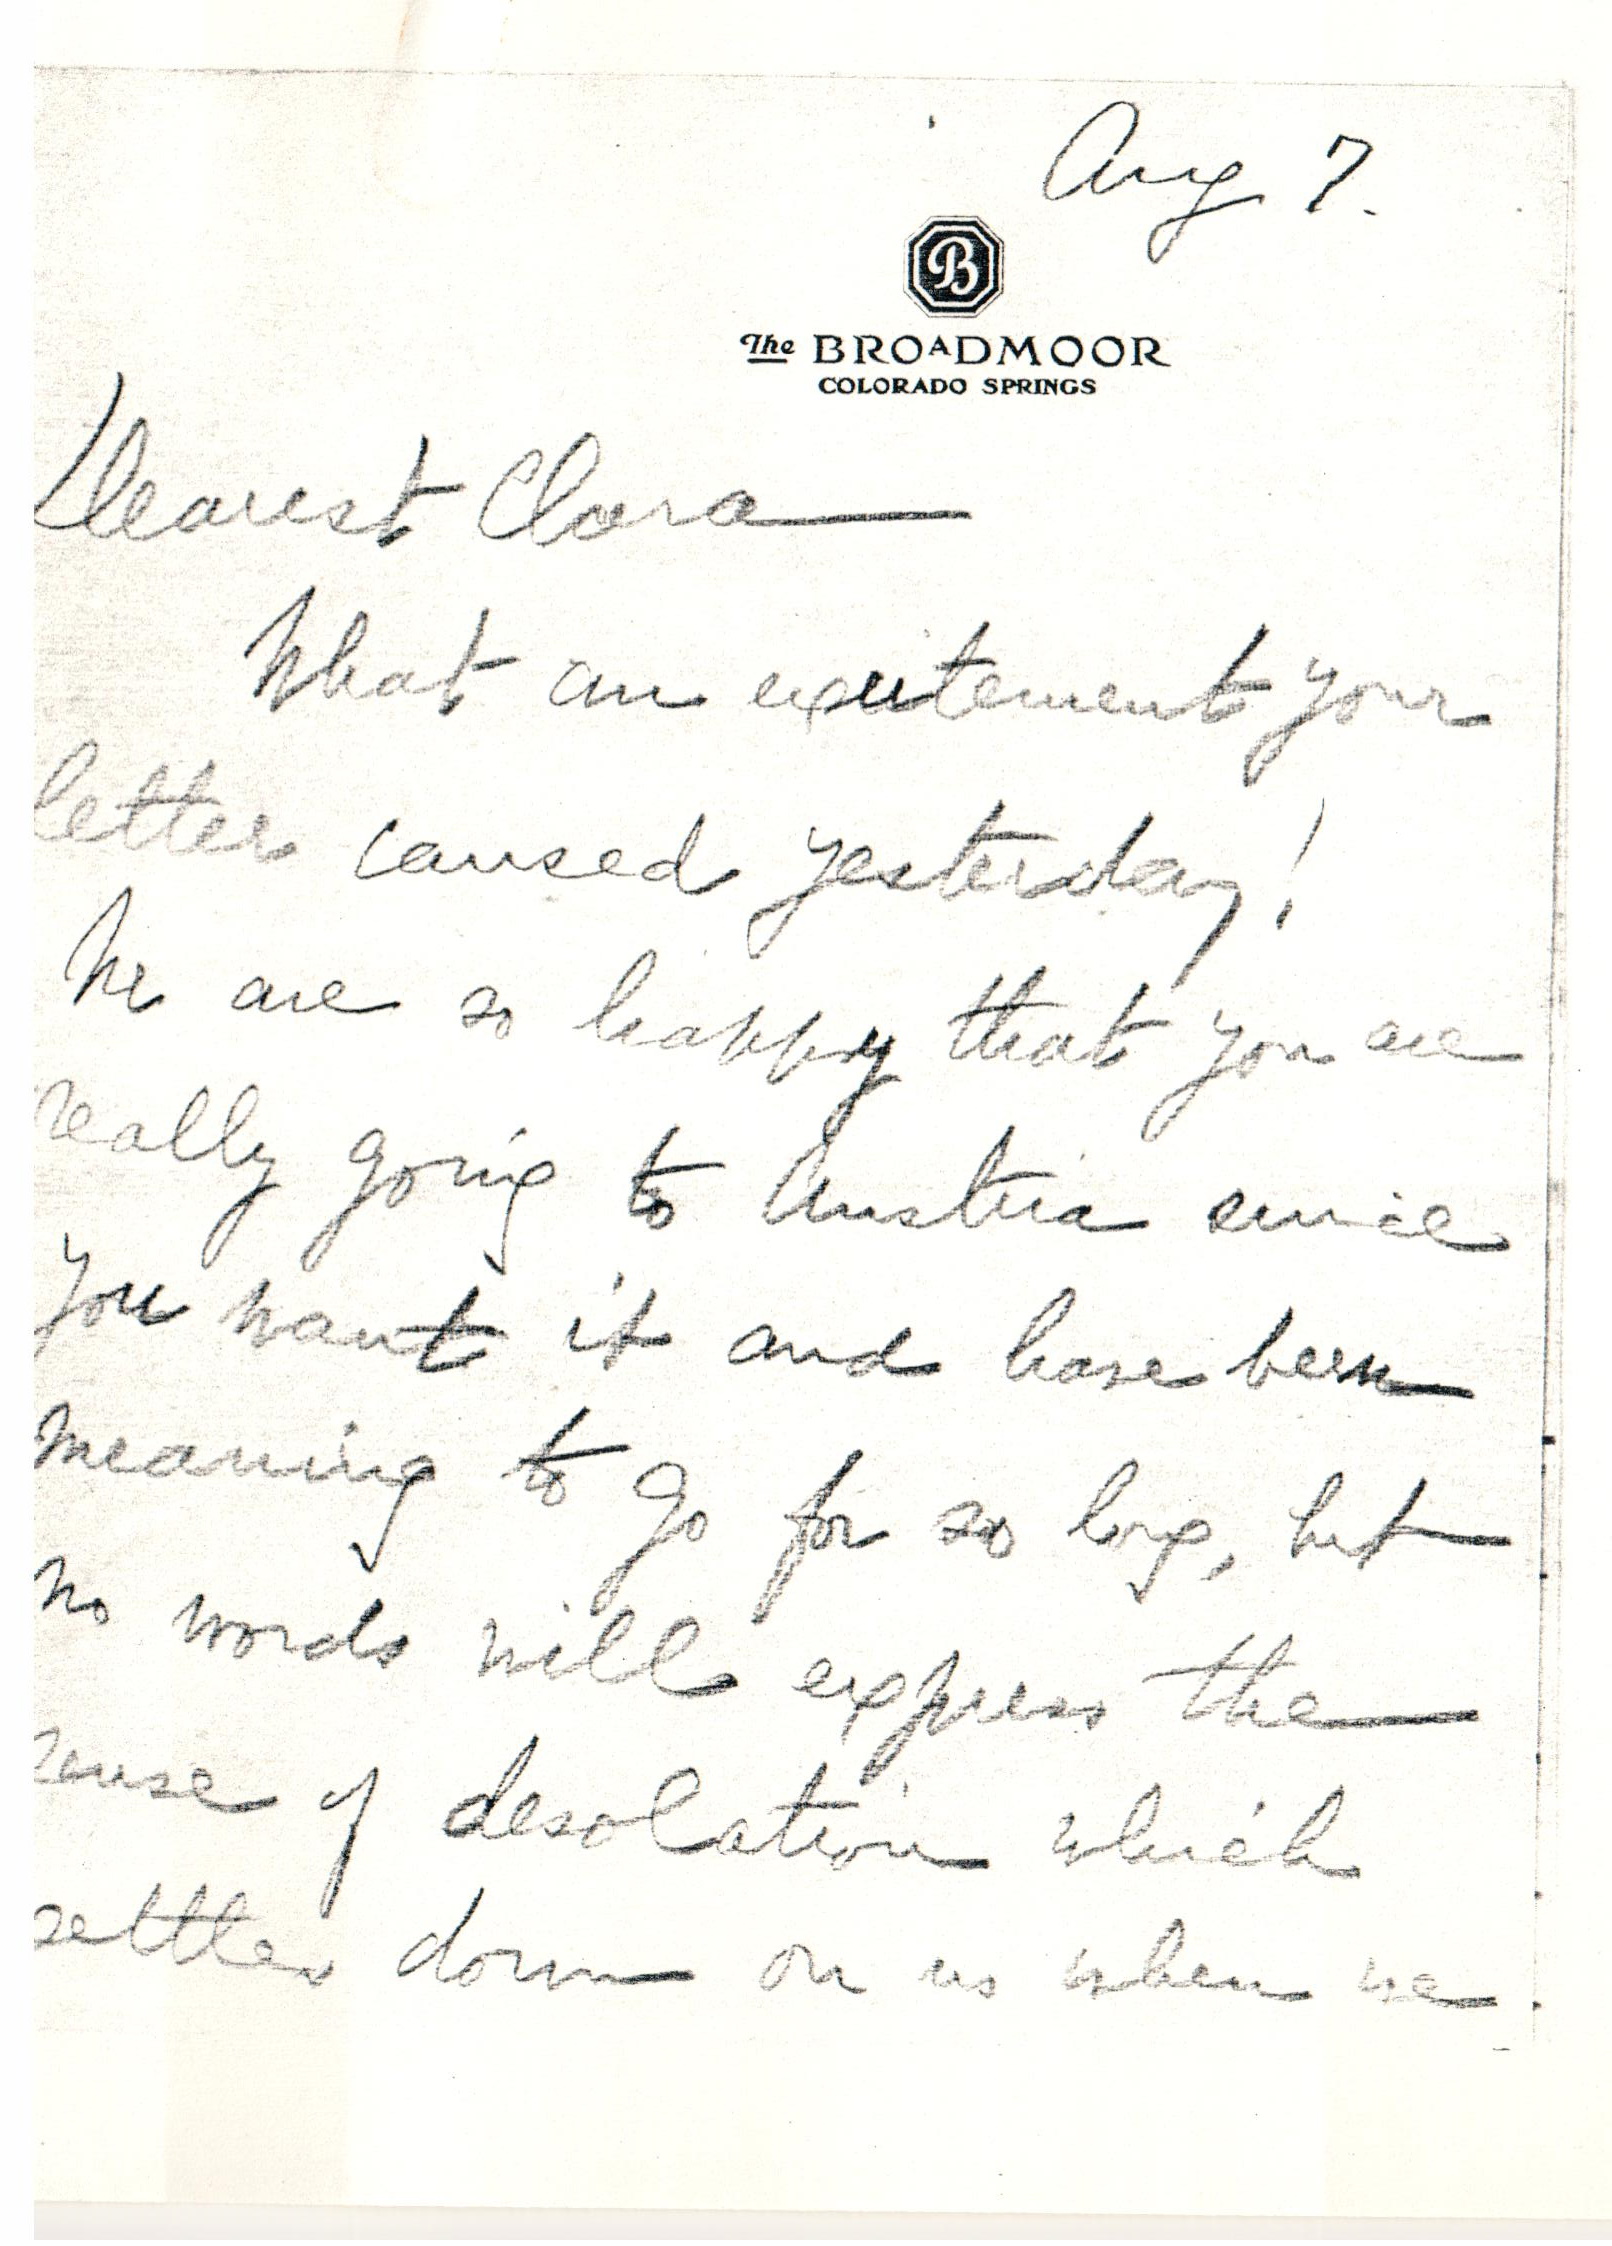 Aug 7.
B
The BROADMOOR
COLORADO SPRINGS
Dearest Clara—
What an excitement your
letter caused yesterday!
We are so happy that you are
really going to Austria since
you want it and have been
meaning to go for so long, but
no words will express the
sense of desolation which
settles down on us when we